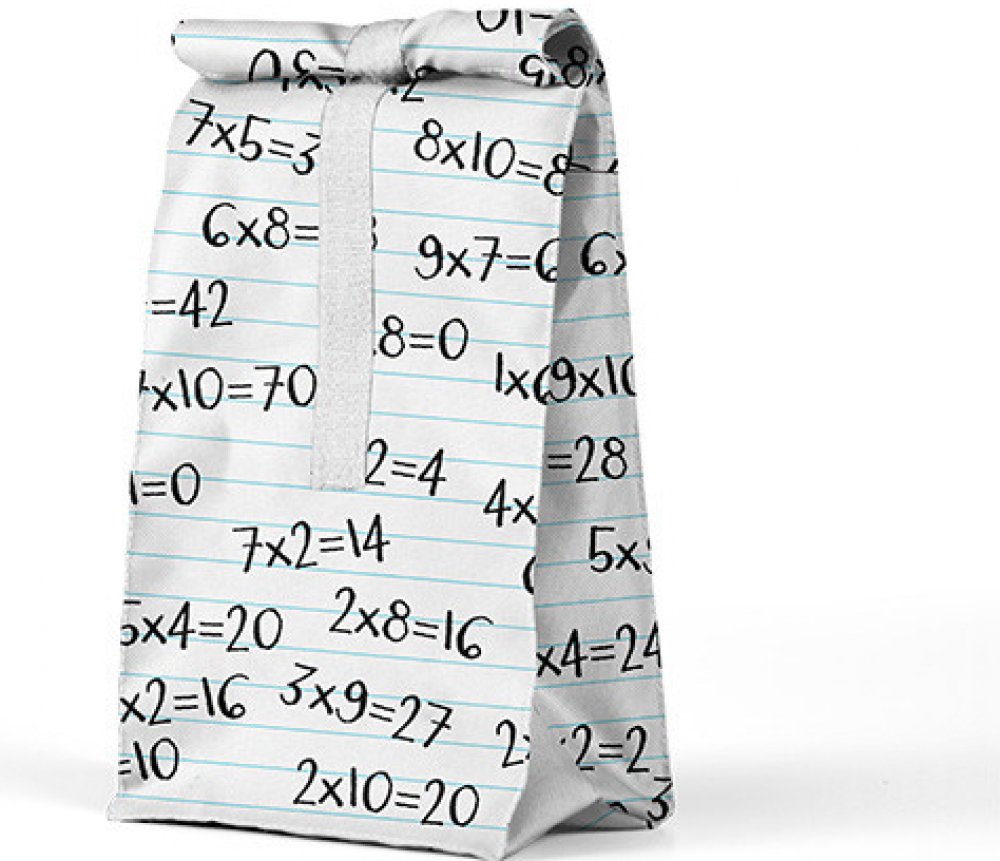 7x5=3
8x10=8
6x8=
9x7=6
6x
=42
.8=0
1x
9x10
x10=70
=28
2=4
=0
4x
7x2=14
5x
5x4=20
2x8=16
x4=24
x2=16
3x9=27
2x
2=2
=10
2x10=20
3